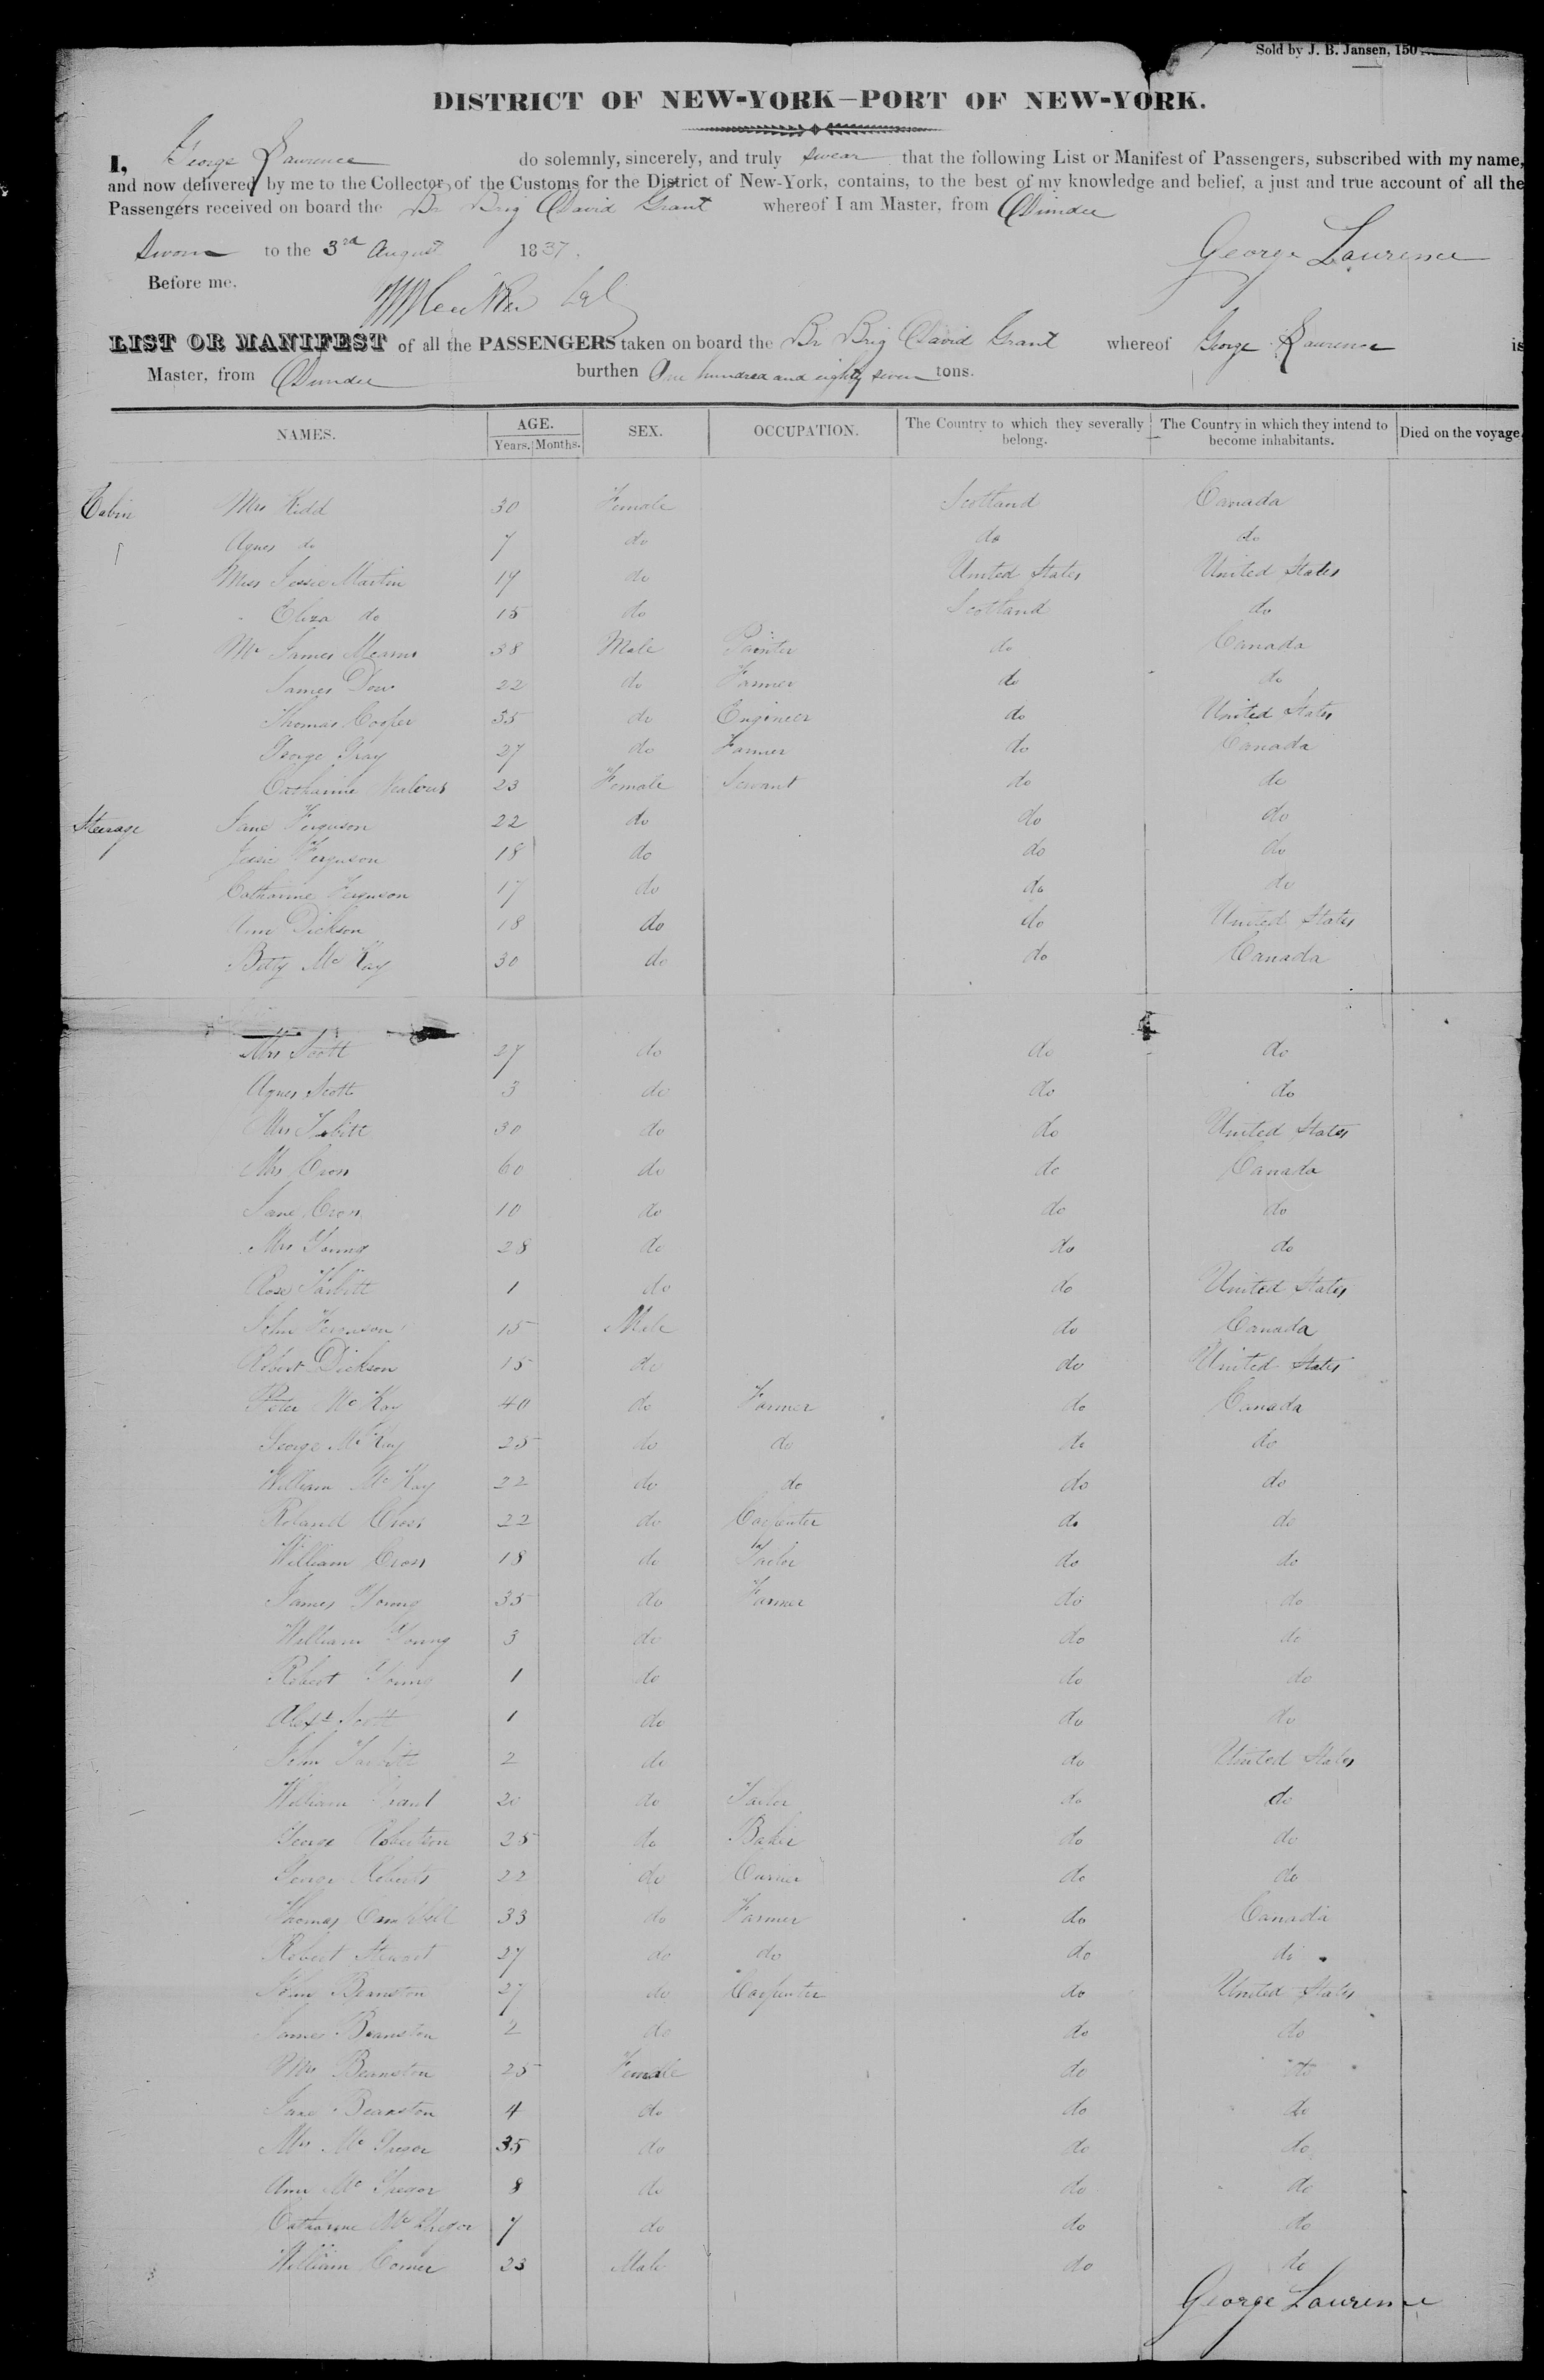 Sold by J. B. Jansen, 150
DISTRICT OF NEW-YORK—PORT OF NEW-YORK.
I, George Laurence do solemnly, sincerely, and truly swear that the following List or Manifest of Passengers, subscribed with my name,
and now delivered by me to the Collector of the Customs for the District of New-York, contains, to the best of my knowledge and belief, a just and true account of all the
Passengers received on board the Br Brig David Grant whereof I am Master, from Dundee
Sworn to the 3rd August 1837. George Laurence
Before me,
LIST OR MANIFEST of all the PASSENGERS taken on board the Br Brig David Grant whereof George Laurence is
Master, from Dundee burthen One hundred and eighty seven tons.
NAMES. AGE. Years. Months. SEX. OCCUPATION. The Country to which they severally belong. The Country in which they intend to become inhabitants. Died on the voyage.
Cabin Mrs Kidd 30 Female Scotland Canada
Agnes do 7 do do do
Miss Jessie Martin 19 do United States United States
Eliza do 15 do Scotland do
Mr James Mearns 38 Male Painter do Canada
James Dow 22 do Farmer do do
Thomas Cooper 35 do Engineer do United States
George Gray 27 do Farmer do Canada
Catharine 23 Female Servant do do
Steerage Jane Ferguson 22 do do do
Jessie Ferguson 18 do do do
Catharine Ferguson 17 do do do
Ann Dickson 18 do do United States
Betty McKay 30 do do Canada
Mrs Scott 27 do do do
Agnes Scott 3 do do do
Mrs 30 do do United States
Mrs Cross 60 do do Canada
Jane Cross 10 do do do
Mrs Young 28 do do do
Rose 1 do do United States
John Ferguson 15 Male do Canada
Robert Dickson 15 do do United States
Peter McKay 40 do Farmer do Canada
George McKay 25 do do do do
William McKay 22 do do do do
Roland Cross 22 do Carpenter do do
William Cross 18 do Tailor do do
James Young 35 do Farmer do do
William Young 3 do do do
Robert Young 1 do do do
Alexr Scott 1 do do do
John 2 do do United States
William Grant 20 do Tailor do do
George Robertson 25 do Baker do do
George Roberts 22 do Currier do do
Thomas Campbell 33 do Farmer do Canada
Robert Stewart 27 do do do do
John Beanston 27 do Carpenter do United States
James Beanston 2 do do do
Mrs Beanston 25 Female do do
Jane Beanston 4 do do do
Mrs McGregor 35 do do do
Ann McGregor 8 do do do
Catharine McGregor 7 do do do
William Comer 23 Male do do
George Laurence